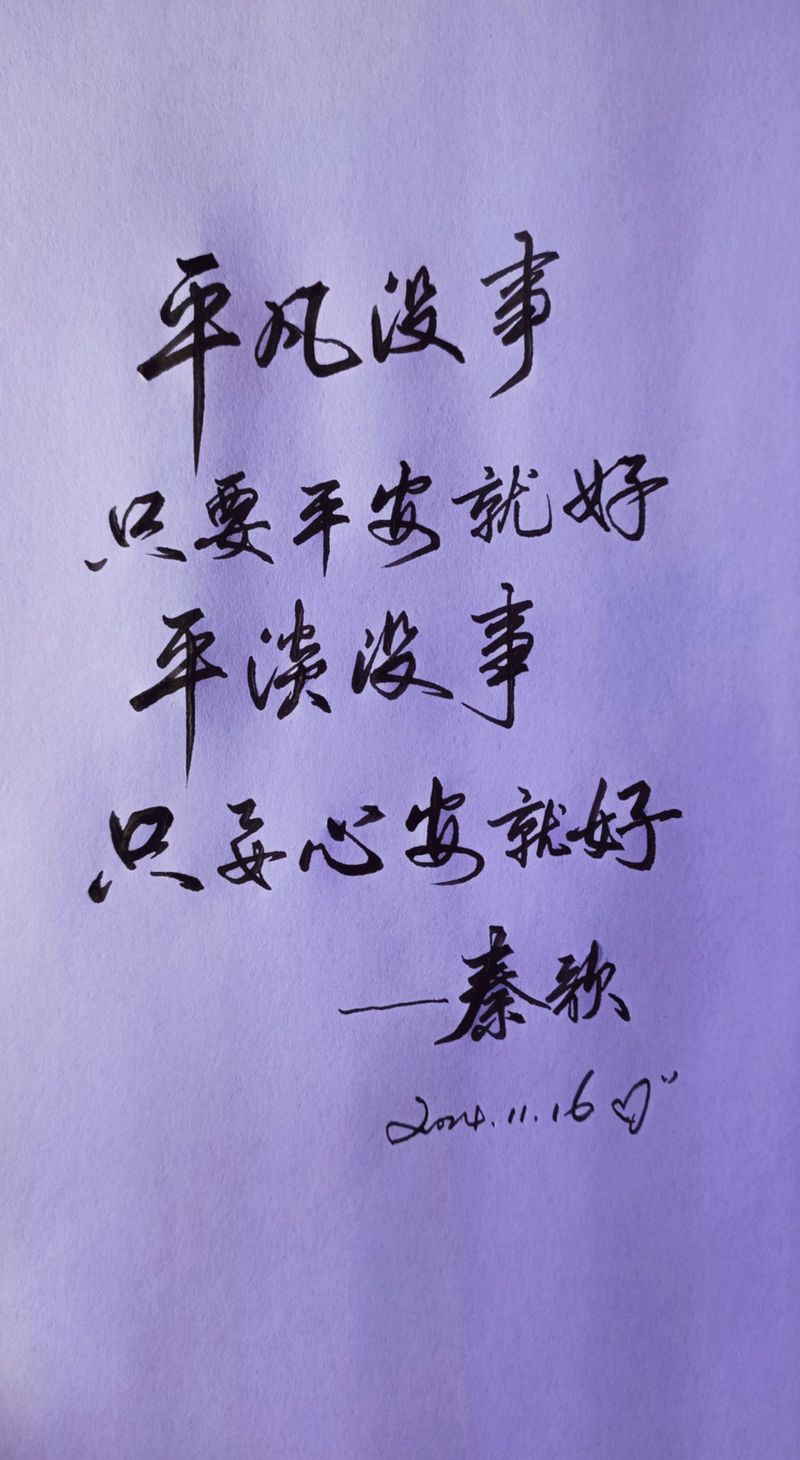 平凡没事
只要平安就好
平淡没事
只要心安就好
——秦歌
2024.11.16